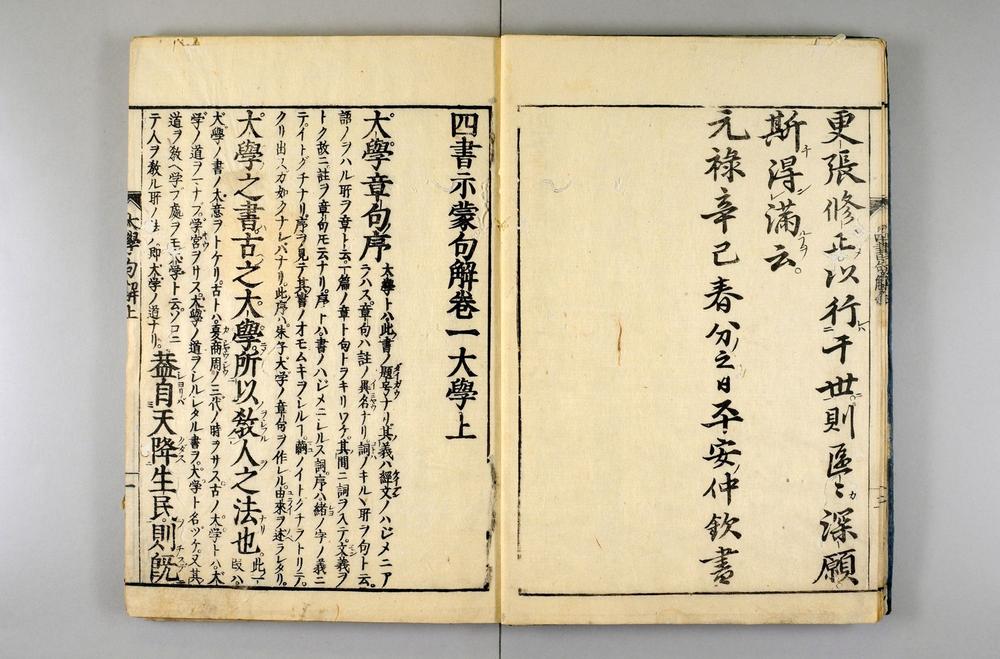 更張修正以行于世則區々深願
斯得滿云
元祿辛巳春分之日平安仲欽書
四書示蒙句解卷一大學上
大學章句序
大學トハ此書ノ題号ナリ其義ハ經文ノハジメニア
ラハス章句ハ註ノ異名ナリ詞ノキルヽ所ヲ句ト云
語ノヲハル所ヲ章ト云一篇ノ章ト句トヲキリワケ其間ニ詞ヲ入テ文義ヲ
トク故ニ註ヲ章句トモ云ナリ序トハ書ノハジメニシルス詞序ハ緒ノ字ノ義ニ
テイトグチナリ序ヲ見テ其書ノオモムキヲシルコト繭ノイトグチヲトリテ
クリ出スガ如クナレバナリ此序ハ朱子大学ノ章句ヲ作レル由来ヲ述ラレタリ
大學之書古之大學所以敎人之法也
此一段ハ
大學ノ書ノ大意ヲトケリ古トハ夏商周ノ三代ノ時ヲサス古ノ大学トハ大
学ノ道ヲマナブ学宮ヲサス大學ノ道ヲシルシタル書ヲ大学ト名ヅケ又其
道ヲ敎ヘ学ブ處ヲモ大学ト云ソコニ
テ人ヲ敎ル所ノ法ノ即大学ノ道ナリ
蓋自天降生民則既
大學句解上
一